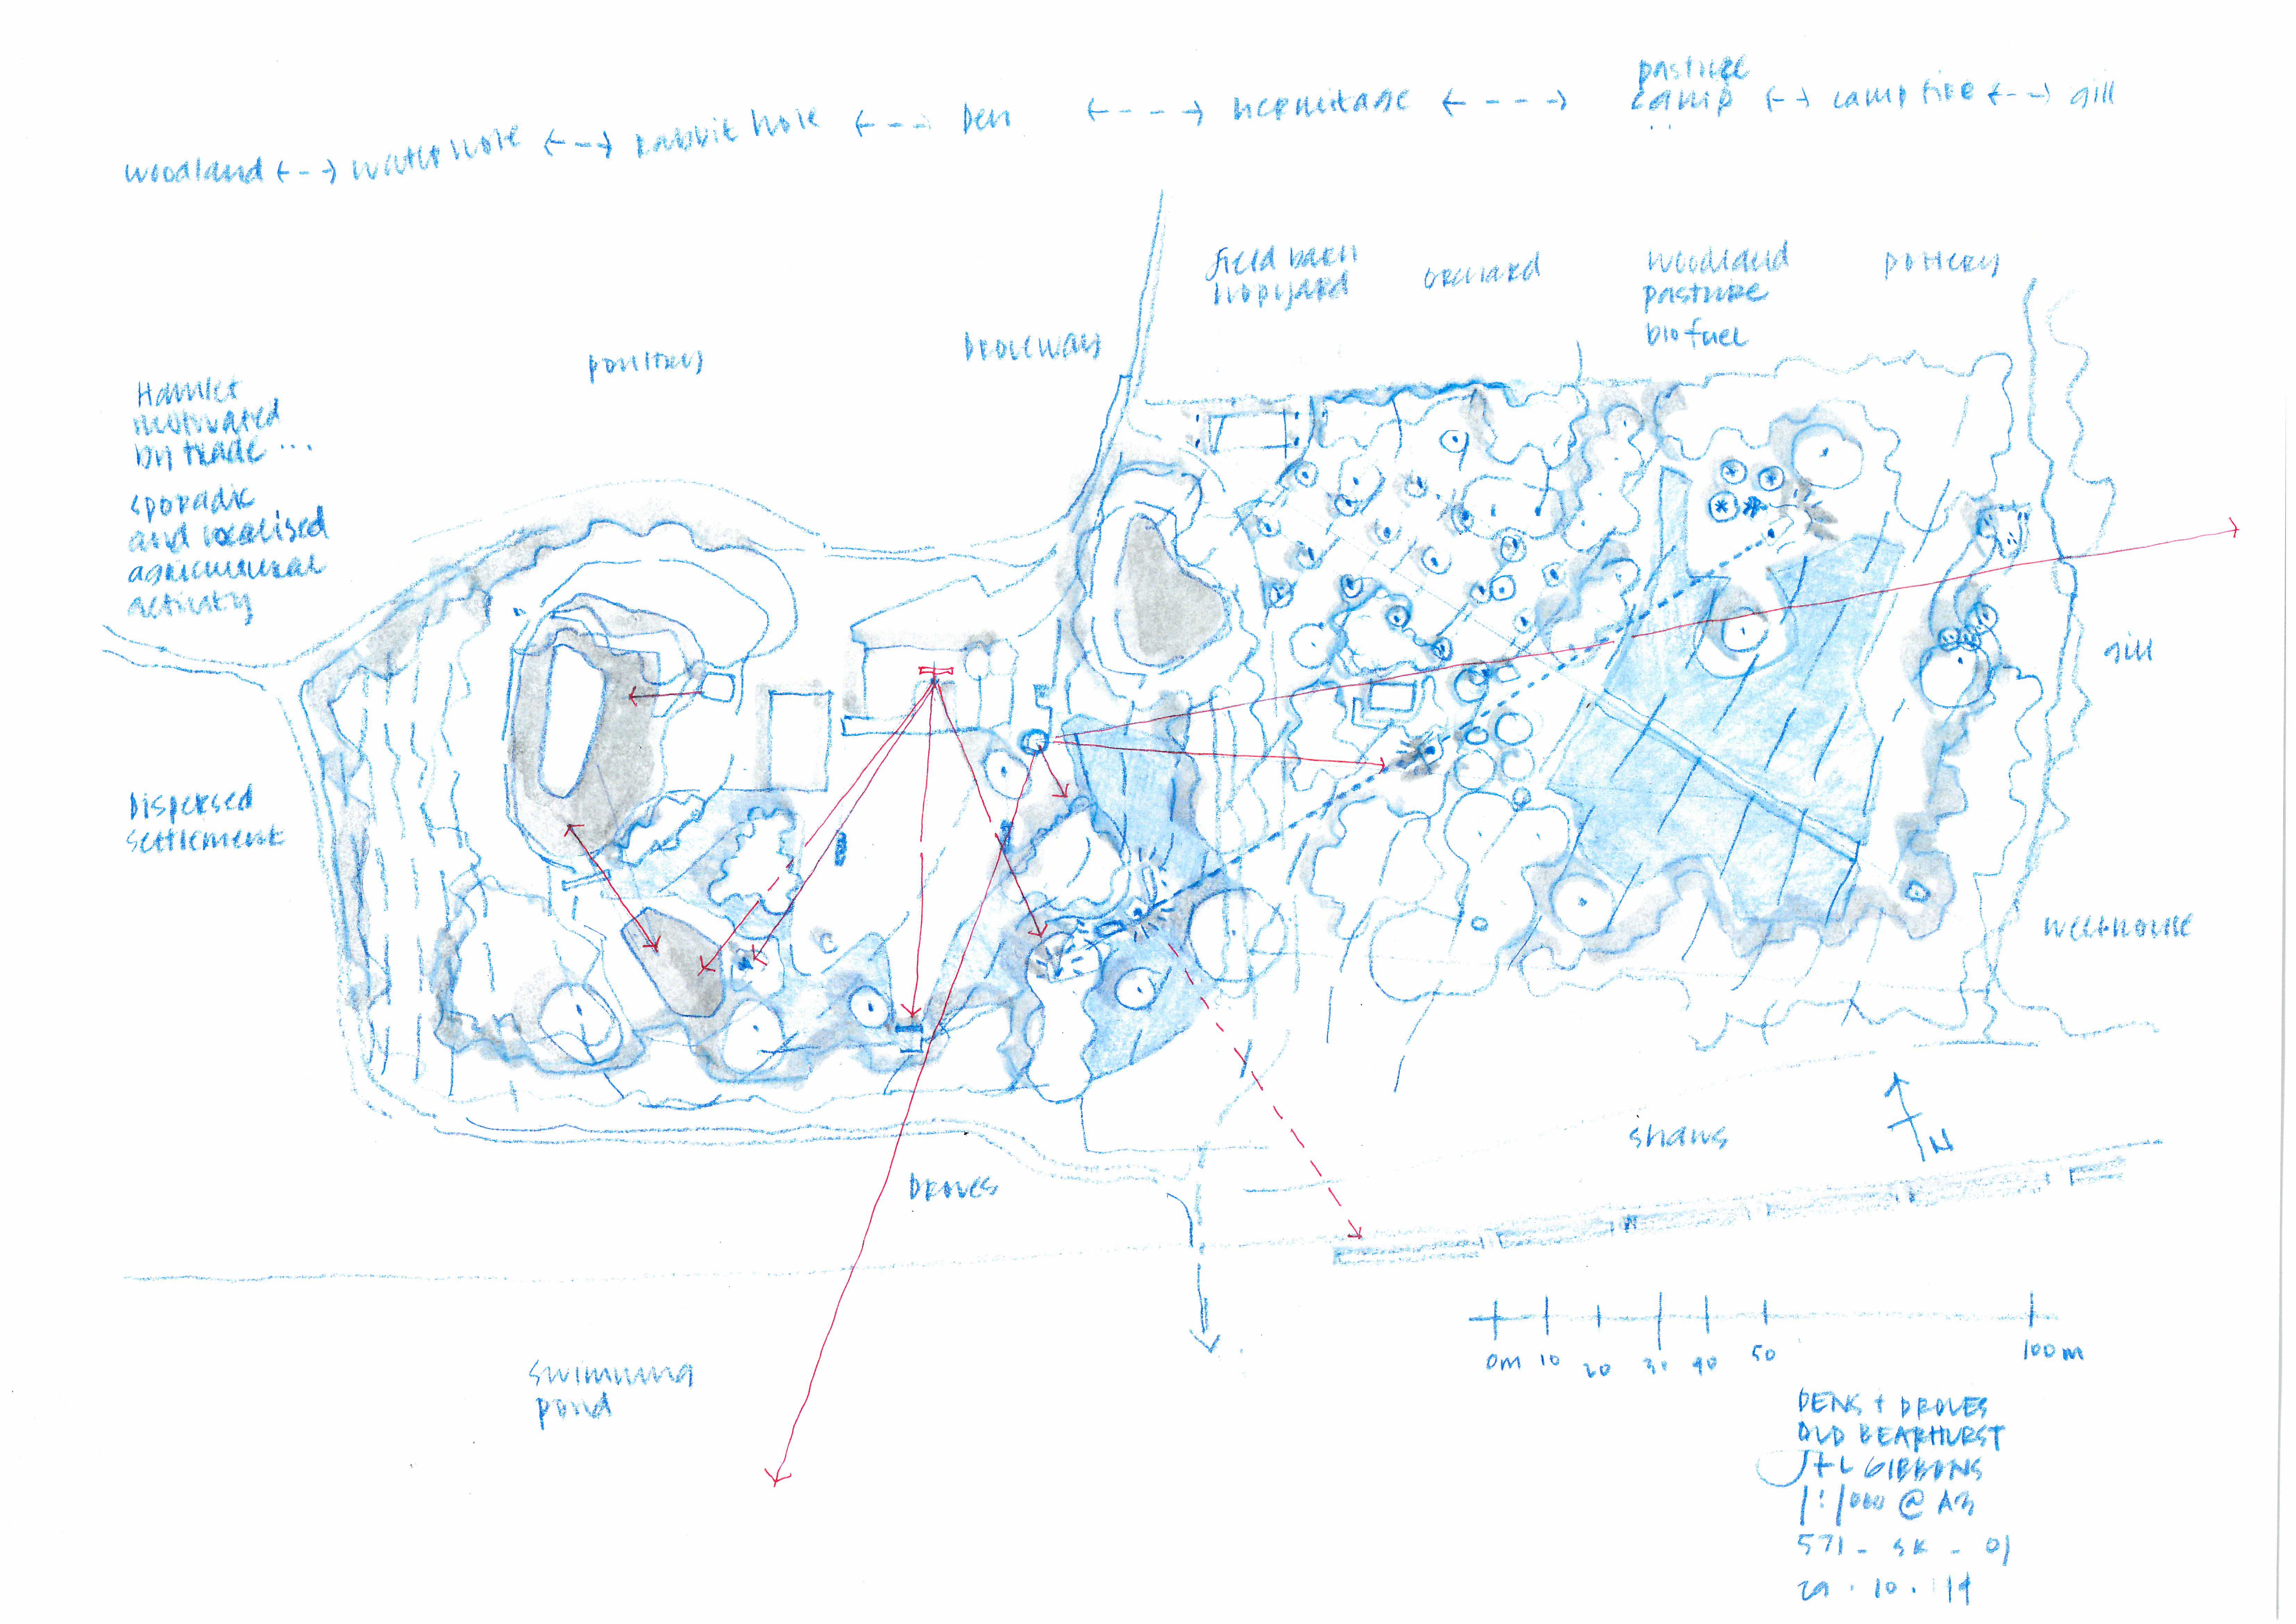 pasture
woodland <--> water hole <--> rabbit hole <--- Den <---> hermitage <---> camp <-> camp fire <--> gill
field barn
hopyard
orchard
woodland
pasture
bio fuel
pottery
Droveways
poultry
Hamlet
motivated
by trade ...
sporadic
and localised
agricultural
activity
gill
Dispersed
settlement
wethouse
shaws
N
Droves
swimming
pond
0m 10 20 30 40 50 100m
DENS + DROVES
OLD BEARHURST
J + L GIBBONS
1:1000 @ A3
571 - SK - 01
29 . 10 . 14